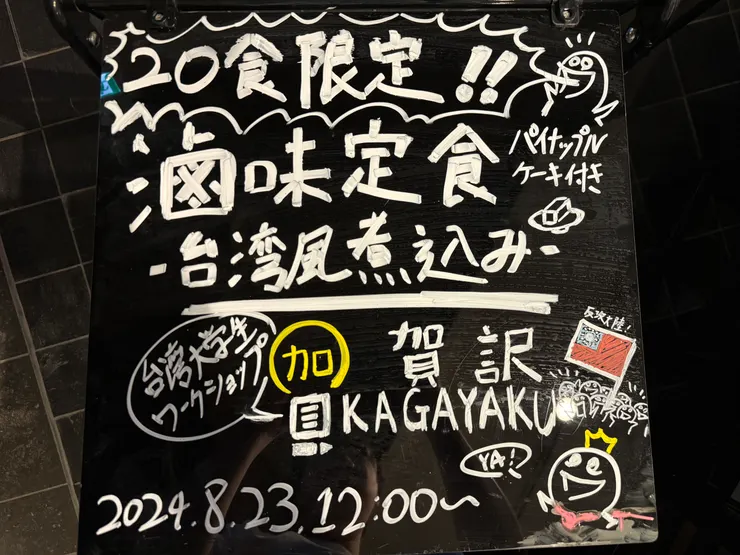 20食限定!!
滷味定食
パイナップル
ケーキ付き
-台湾風煮込み-
台湾大学生
ワークショップ
加
賀訳
KAGAYAKU
YA!
2024.8.23.12:00~